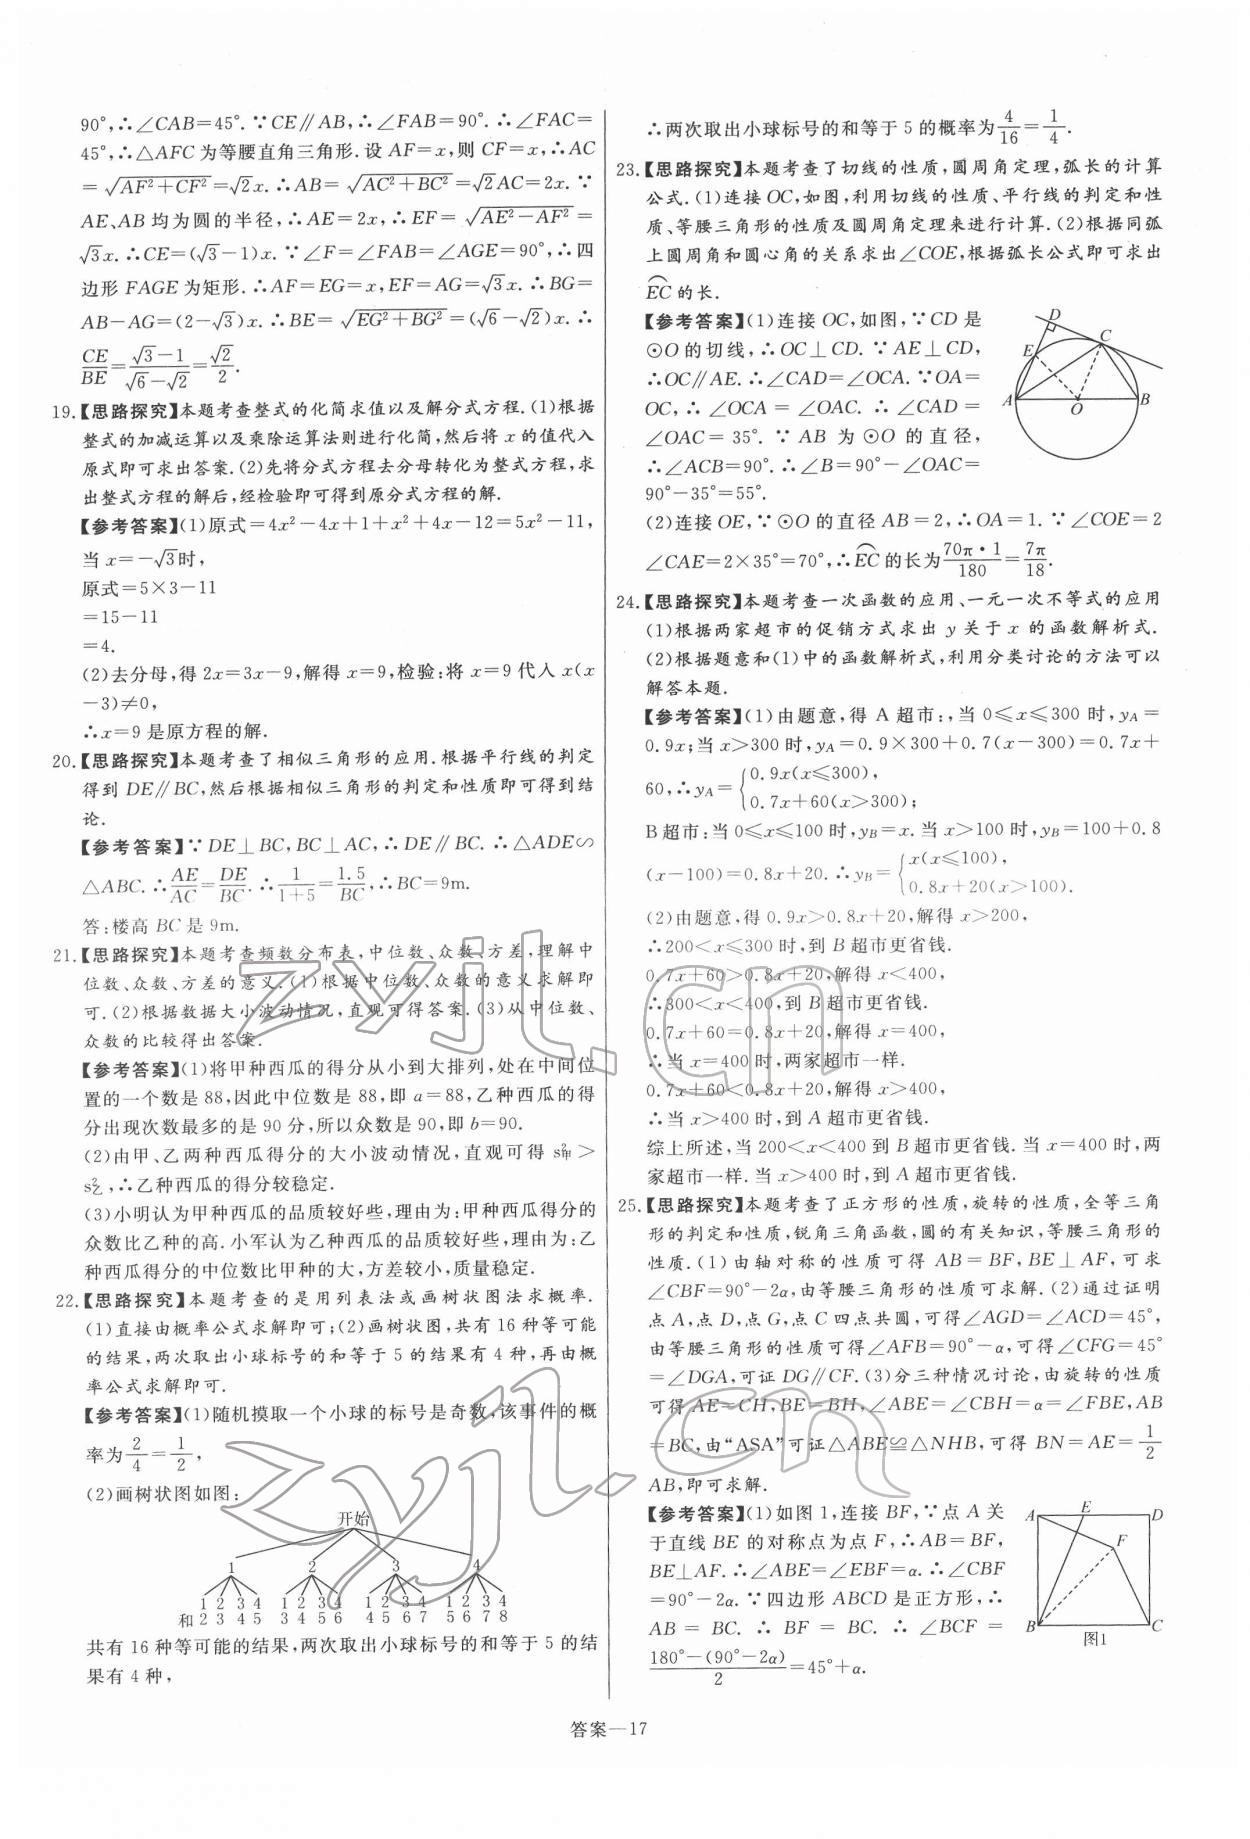 90°,∴∠CAB=45°.∵CE∥AB,∴∠FAB=90°.∴∠FAC=
45°,∴△AFC为等腰直角三角形.设AF=x,则CF=x,∴AC
=√(AF²+CF²)=√2x.∴AB=√(AC²+BC²)=√2AC=2x.∵
AE、AB均为圆的半径,∴AE=2x,∴EF=√(AE²-AF²)=
√3x.∴CE=(√3-1)x.∵∠F=∠FAB=∠AGE=90°,∴四
边形FAGE为矩形.∴AF=EG=x,EF=AG=√3x.∴BG=
AB-AG=(2-√3)x.∴BE=√(EG²+BG²)=(√6-√2)x.∴
CE/BE=(√3-1)/(√6-√2)=√2/2.
19.【思路探究】本题考查整式的化简求值以及解分式方程.(1)根据
整式的加减运算以及乘除运算法则进行化简,然后将x的值代入
原式即可求出答案.(2)先将分式方程去分母转化为整式方程,求
出整式方程的解后,经检验即可得到原分式方程的解.
【参考答案】(1)原式=4x²-4x+1+x²+4x-12=5x²-11,
当x=-√3时,
原式=5×3-11
=15-11
=4.
(2)去分母,得2x=3x-9,解得x=9,检验:将x=9代入x(x
-3)≠0,
∴x=9是原方程的解.
20.【思路探究】本题考查了相似三角形的应用.根据平行线的判定
得到DE∥BC,然后根据相似三角形的判定和性质即可得到结
论.
【参考答案】∵DE⊥BC,BC⊥AC,∴DE∥BC.∴△ADE∽
△ABC.∴AE/AC=DE/BC.∴1/(1+5)=1.5/BC,∴BC=9m.
答:楼高BC是9m.
21.【思路探究】本题考查频数分布表,中位数、众数、方差,理解中
位数、众数、方差的意义.(1)根据中位数、众数的意义求解即
可.(2)根据数据大小波动情况,直观可得答案.(3)从中位数、
众数的比较得出答案.
【参考答案】(1)将甲种西瓜的得分从小到大排列,处在中间位
置的一个数是88,因此中位数是88,即a=88,乙种西瓜的得
分出现次数最多的是90分,所以众数是90,即b=90.
(2)由甲、乙两种西瓜得分的大小波动情况,直观可得s²甲>
s²乙,∴乙种西瓜的得分较稳定.
(3)小明认为甲种西瓜的品质较好些,理由为:甲种西瓜得分的
众数比乙种的高.小军认为乙种西瓜的品质较好些,理由为:乙
种西瓜得分的中位数比甲种的大,方差较小,质量稳定.
22.【思路探究】本题考查的是用列表法或画树状图法求概率.
(1)直接由概率公式求解即可;(2)画树状图,共有16种等可能
的结果,两次取出小球标号的和等于5的结果有4种,再由概
率公式求解即可.
【参考答案】(1)随机摸取一个小球的标号是奇数,该事件的概
率为2/4=1/2,
(2)画树状图如图:
开始
1 2 3 4
1 2 3 4 1 2 3 4 1 2 3 4 1 2 3 4
和2 3 4 5 3 4 5 6 4 5 6 7 5 6 7 8
共有16种等可能的结果,两次取出小球标号的和等于5的结
果有4种,
∴两次取出小球标号的和等于5的概率为4/16=1/4.
23.【思路探究】本题考查了切线的性质,圆周角定理,弧长的计算
公式.(1)连接OC,如图,利用切线的性质、平行线的判定和性
质、等腰三角形的性质及圆周角定理来进行计算.(2)根据同弧
上圆周角和圆心角的关系求出∠COE,根据弧长公式即可求出
⌒EC的长.
【参考答案】(1)连接OC,如图,∵CD是
⊙O的切线,∴OC⊥CD.∵AE⊥CD,
∴OC∥AE.∴∠CAD=∠OCA.∵OA=
OC,∴∠OCA=∠OAC.∴∠CAD=
∠OAC=35°.∵AB为⊙O的直径,
∴∠ACB=90°.∴∠B=90°-∠OAC=
90°-35°=55°.
D
C
E
A
O
B
(2)连接OE,∵⊙O的直径AB=2,∴OA=1.∵∠COE=2
∠CAE=2×35°=70°,∴⌒EC的长为70π·1/180=7π/18.
24.【思路探究】本题考查一次函数的应用、一元一次不等式的应用
(1)根据两家超市的促销方式求出y关于x的函数解析式.
(2)根据题意和(1)中的函数解析式,利用分类讨论的方法可以
解答本题.
【参考答案】(1)由题意,得A超市:,当0≤x≤300时,yA=
0.9x;当x>300时,yA=0.9×300+0.7(x-300)=0.7x+
60,∴yA={0.9x(x≤300),
0.7x+60(x>300);
B超市:当0≤x≤100时,yB=x.当x>100时,yB=100+0.8
(x-100)=0.8x+20.∴yB={x(x≤100),
0.8x+20(x>100).
(2)由题意,得0.9x>0.8x+20,解得x>200,
∴200<x≤300时,到B超市更省钱.
0.7x+60>0.8x+20,解得x<400,
∴300<x<400,到B超市更省钱.
0.7x+60=0.8x+20,解得x=400,
∴当x=400时,两家超市一样.
0.7x+60<0.8x+20,解得x>400,
∴当x>400时,到A超市更省钱.
综上所述,当200<x<400到B超市更省钱.当x=400时,两
家超市一样.当x>400时,到A超市更省钱.
25.【思路探究】本题考查了正方形的性质,旋转的性质,全等三角
形的判定和性质,锐角三角函数,圆的有关知识,等腰三角形的
性质.(1)由轴对称的性质可得AB=BF,BE⊥AF,可求
∠CBF=90°-2α,由等腰三角形的性质可求解.(2)通过证明
点A,点D,点G,点C四点共圆,可得∠AGD=∠ACD=45°,
由等腰三角形的性质可得∠AFB=90°-α,可得∠CFG=45°
=∠DGA,可证DG∥CF.(3)分三种情况讨论,由旋转的性质
可得AE=CH,BE=BH,∠ABE=∠CBH=α=∠FBE,AB
=BC,由“ASA”可证△ABE≌△NHB,可得BN=AE=1/2
AB,即可求解.
【参考答案】(1)如图1,连接BF,∵点A关
于直线BE的对称点为点F,∴AB=BF,
BE⊥AF.∴∠ABE=∠EBF=α.∴∠CBF
=90°-2α.∵四边形ABCD是正方形,∴
AB=BC.∴BF=BC.∴∠BCF=
(180°-(90°-2α))/2=45°+α.
A
E
D
F
B
C
图1
答案—17
zyjl.cn
zyjl.cn